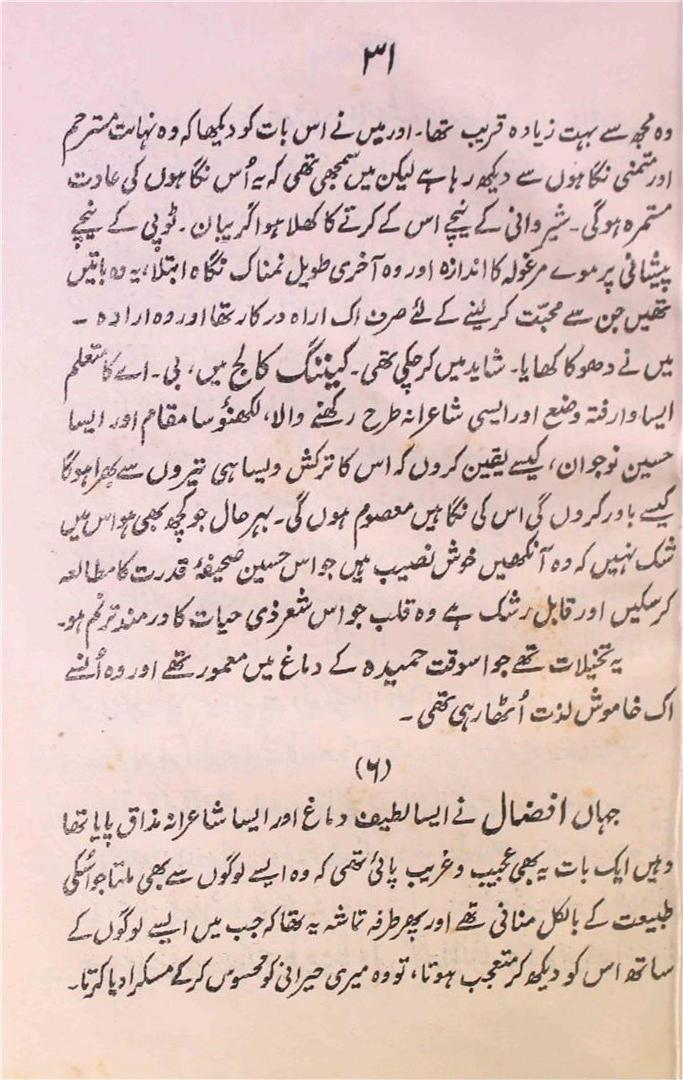 ۳۱
وہ مجھ سے بہت زیادہ قریب تھا۔ اور میں نے اس بات کو دیکھا کہ وہ نہایت مسترحم
اور متمنی نگاہوں سے دیکھ رہا ہے لیکن میں سمجھی تھی کہ یہ اُس نگاہوں کی عادت
مستمرہ ہوگی۔ شیروانی کے نیچے اس کے کرتے کا کھلا ہوا گریبان۔ ٹوپی کے نیچے
پیشانی پر موے مرغولہ کا اندازہ اور وہ آخری طویل نمناک نگاہ ابتلا، یہ وہ باتیں
تھیں جن سے محبّت کرلینے کے لئے صرف اک اراہ درکار تھا اور وہ ارادہ ۔
میں نے دھوکا کھایا۔ شاید میں کرچکی تھی۔ کیننگ کالج میں، بی۔ اے کا متعلم
ایسا وارفتہ وضع اور ایسی شاعرانہ طرح رکھنے والا، لکھنؤ سا مقام اور ایسا
حسین نوجوان، کیسے یقین کروں کہ اس کا ترکش ویسا ہی تیروں سے بھرا ہوگا
کیسے باور کروں گی اس کی نگاہیں معصوم ہوں گی۔ بہرحال جو کچھ بھی ہو اس میں
شک نہیں کہ وہ آنکھیں خوش نصیب ہیں جو اس حسین صحیفۂ قدرت کا مطالعہ
کرسکیں اور قابل رشک ہے وہ قلب جو اس شعر ذی حیات کا درمند ترنم ہو۔
یہ تخیلات تھے جو اسوقت حمیدہ کے دماغ میں معمور تھے اور وہ اُنسے
اک خاموش لذت اُٹھا رہی تھی ۔
(۶)
جہاں افضال نے ایسا لطیف دماغ اور ایسا شاعرانہ مذاق پایا تھا
وہیں ایک بات یہ بھی عجیب و غریب پائی تھی کہ وہ ایسے لوگوں سے بھی ملتا جو اُسکی
طبیعت کے بالکل منافی تھے اور پھر طرفہ تماشہ یہ تھا کہ جب میں ایسے لوگوں کے
ساتھ اس کو دیکھ کر متعجب ہوتا، تو وہ میری حیرانی کو محسوس کرکے مسکرا دیا کرتا۔